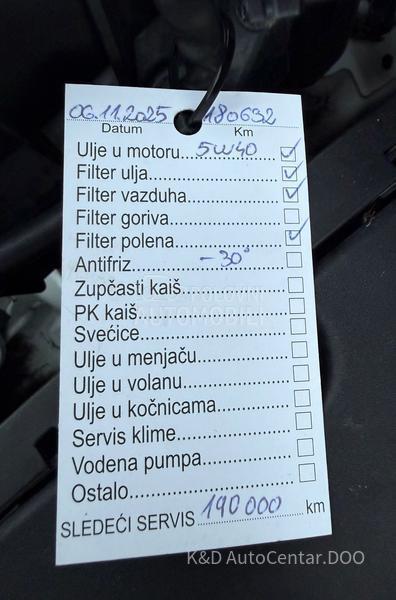 06.11.2025 180632
Datum Km
Ulje u motoru 5W40
Filter ulja
Filter vazduha
Filter goriva
Filter polena
Antifriz -30°
Zupčasti kaiš
POLOVNI
AUTOMOBILI
PK kaiš
Svećice
Ulje u menjaču
Ulje u volanu
Ulje u kočnicama
Servis klime
Vodena pumpa
Ostalo
SLEDEĆI SERVIS 190 000 km
K&D AutoCentar.DOO